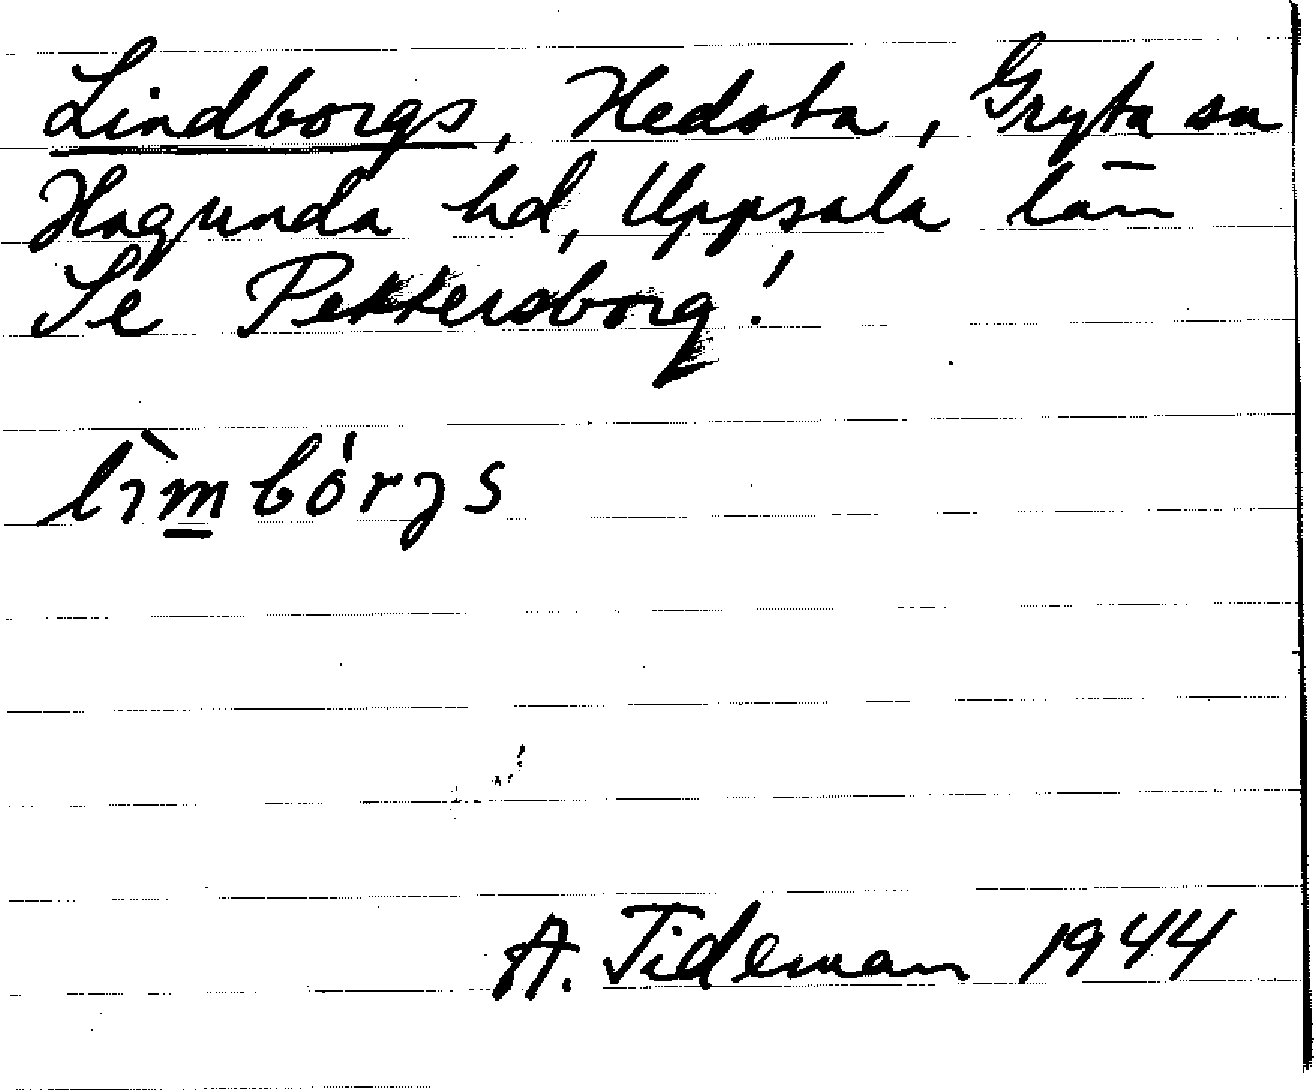 Lindborgs, Hedsta, Gryta sn
Hagunda hd, Uppsala län
Se Pettersborg!
lìmbórgs
A. Tideman 1944